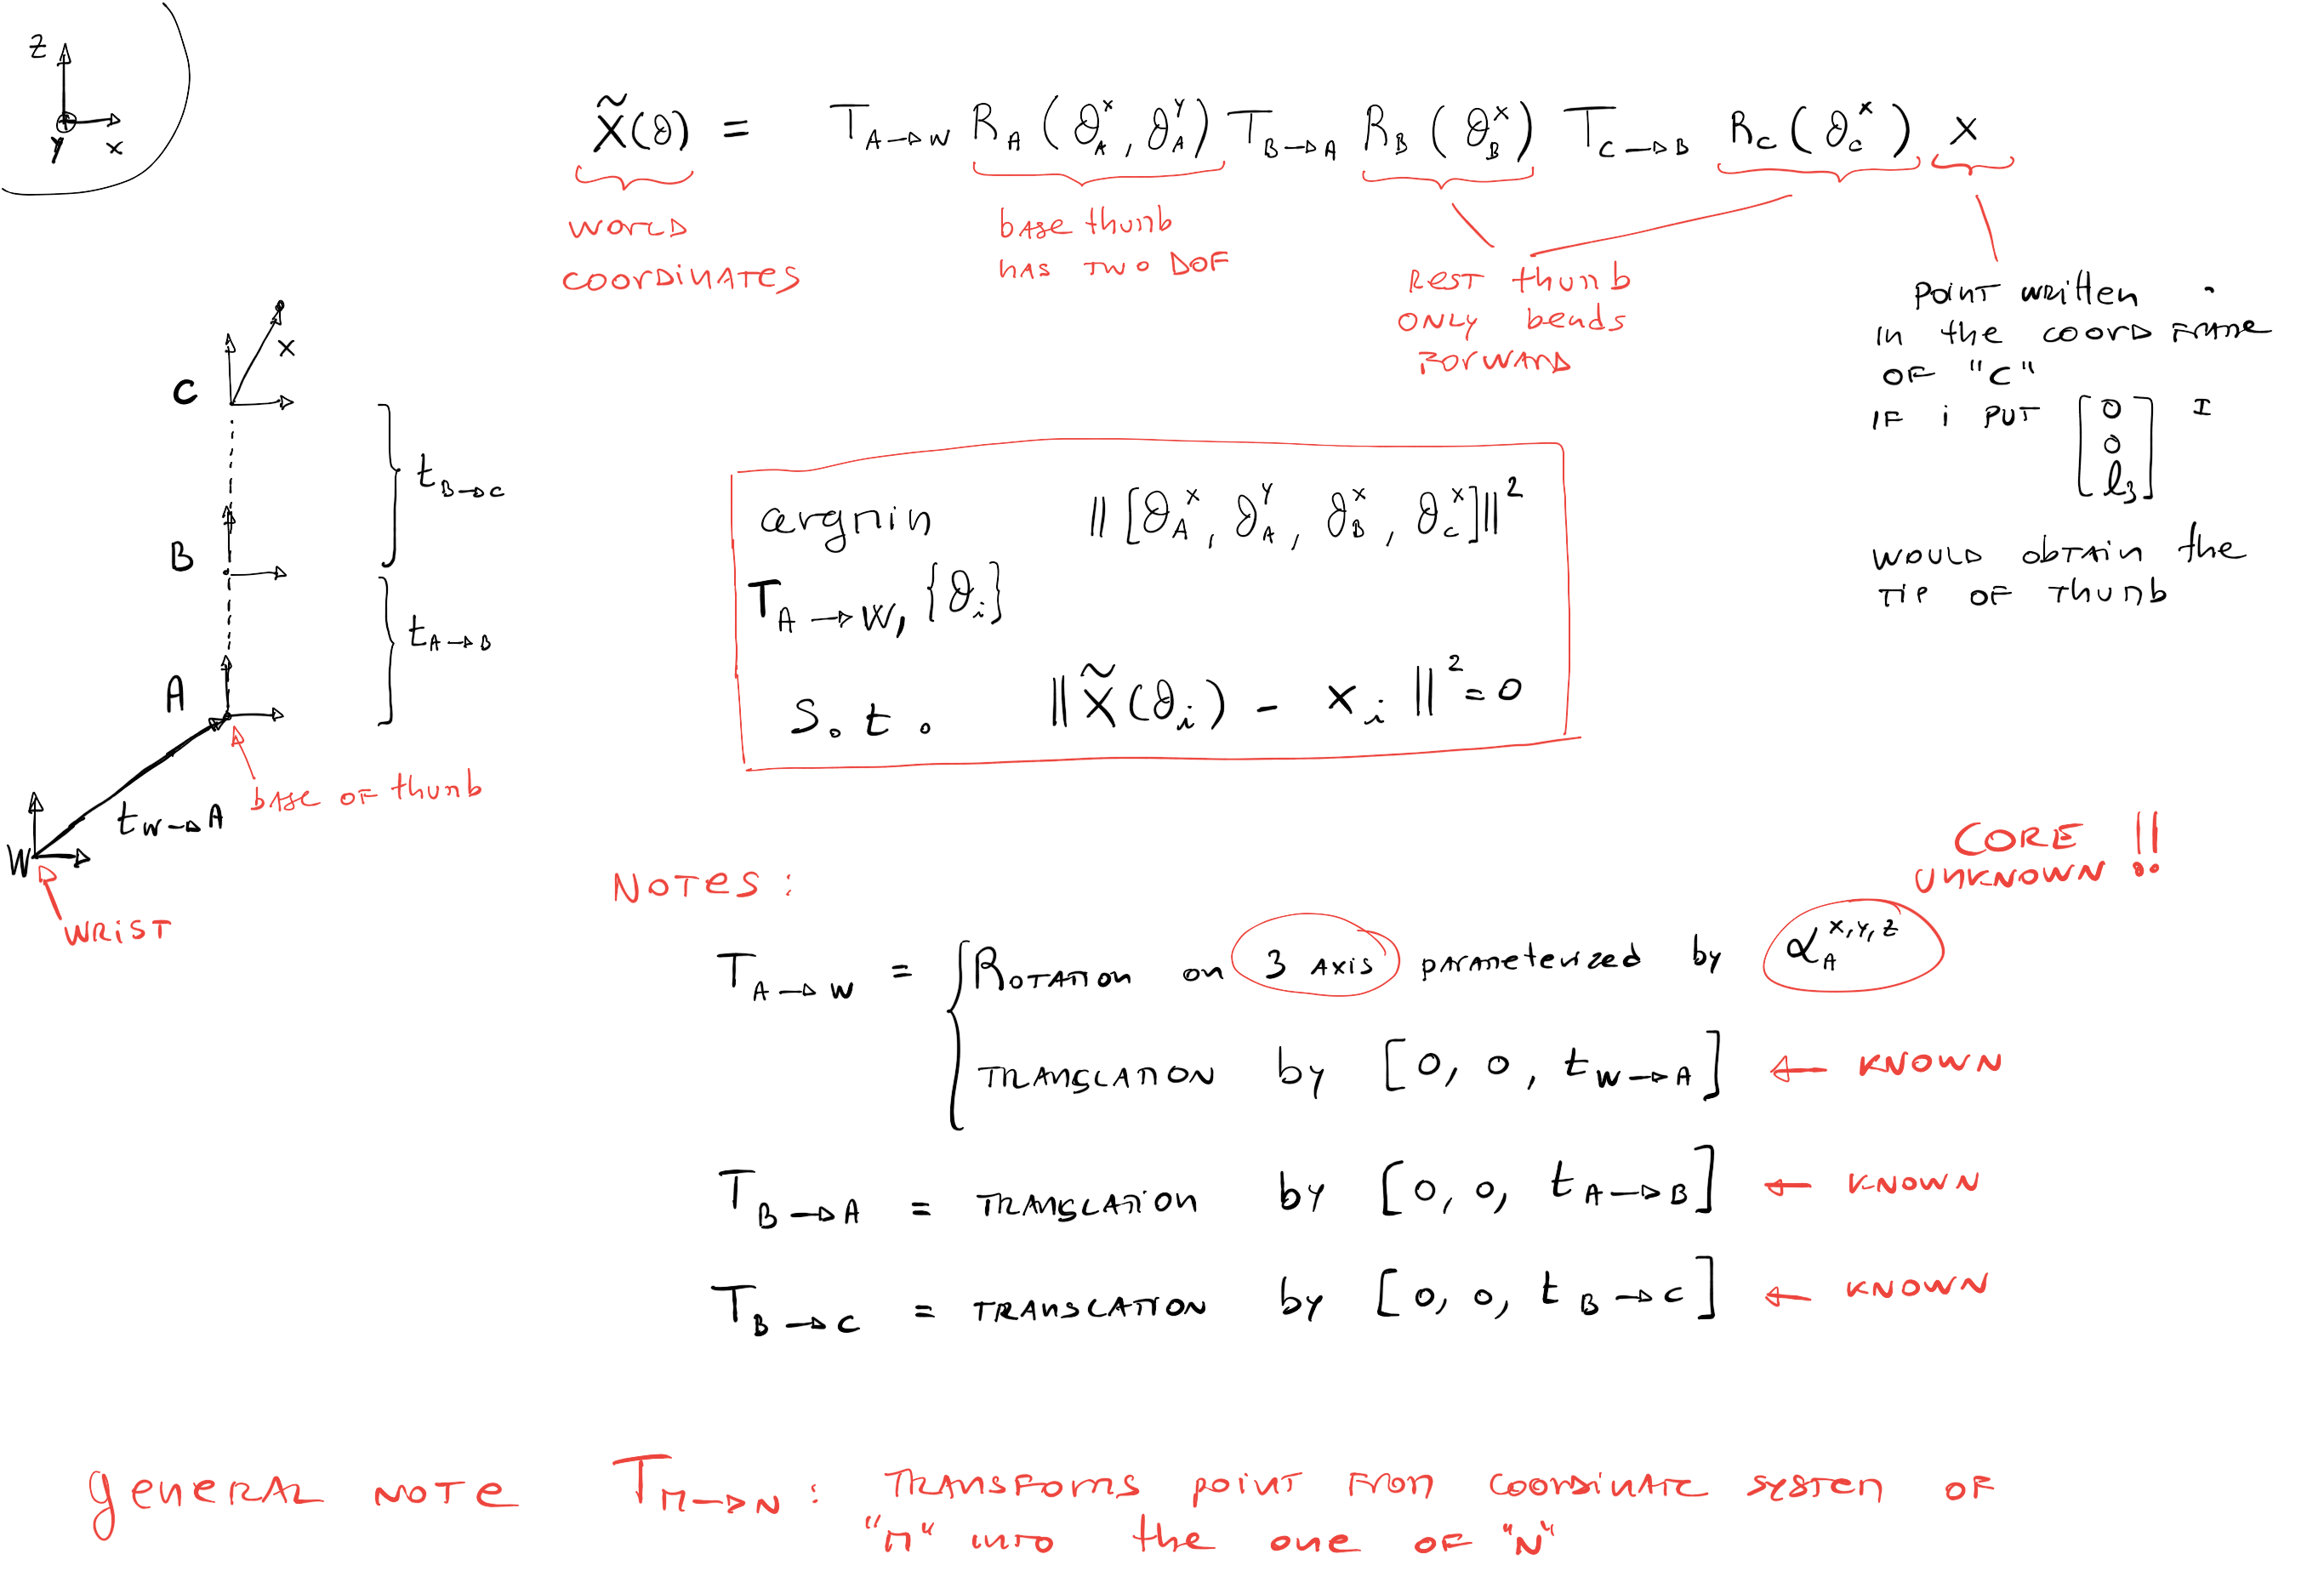 z
y x
X̃(θ) = T_{A→W} R_A(θ_A^x, θ_A^y) T_{B→A} R_B(θ_B^x) T_{C→B} R_C(θ_C^x) x
WORLD
COORDINATES
base thumb
HAS TWO DOF
REST thumb
ONLY bends
FORWARD
POINT written
IN the COORD FRAME
OF "C"
IF i PUT [0 0 l_3] I
WOULD obTAIN the
TIP OF THUMB
x
C
t_{B→C}
B
t_{A→B}
A
base OF thumb
t_{W→A}
W
WRIST
argmin ||[θ_A^x, θ_A^y, θ_B^x, θ_C^x]||^2
T_{A→W}, {θ_i}
S.t. ||X̃(θ_i) - x_i||^2 = 0
NOTES:
CORE
UNKNOWN !!
T_{A→W} = { ROTATION on 3 AXIS parameterized by α_A^{x,y,z}
TRANSLATION by [0, 0, t_{W→A}] ← KNOWN
T_{B→A} = TRANSLATION by [0, 0, t_{A→B}] ← KNOWN
T_{B→C} = TRANSLATION by [0, 0, t_{B→C}] ← KNOWN
general NOTE T_{M→N}: TRANSFORMS POINT FROM COORDINATE SYSTEM OF
"M" INTO the one OF "N"